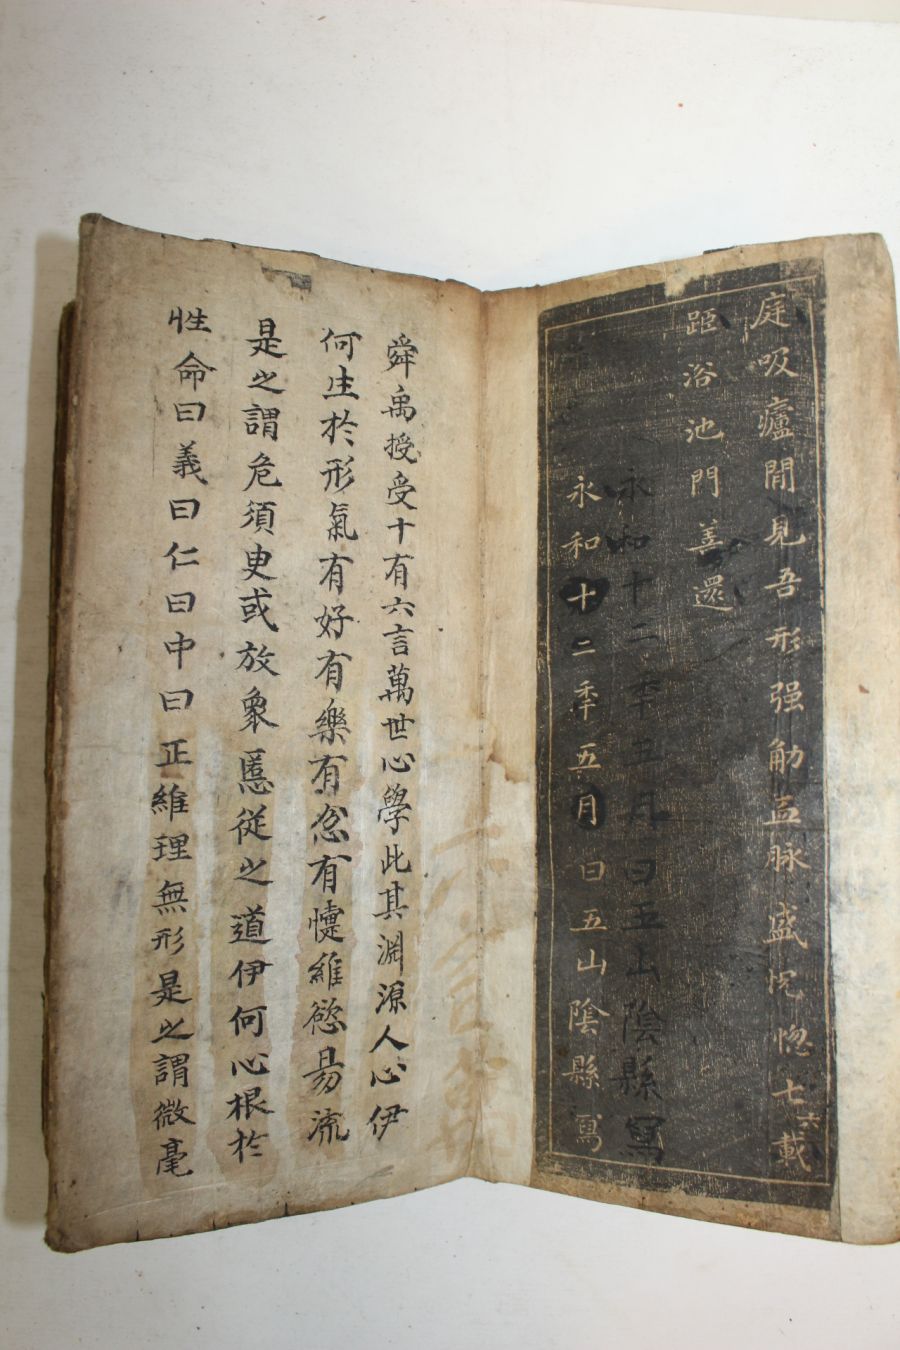 庭吸瘧閒見吾形强觔孟脉盛忾惚七六載
距浴池門善還
永和十二季五月日五山陰縣寫
永和十二季五月日五山陰縣寫
舜禹授受十有六言萬世心學此其淵源人心伊
何生於形氣有好有樂有忿有懥維慾易流
是之謂危須臾或放衆慝從之道伊何心根於
性命曰義曰仁曰中曰正維理無形是之謂微毫